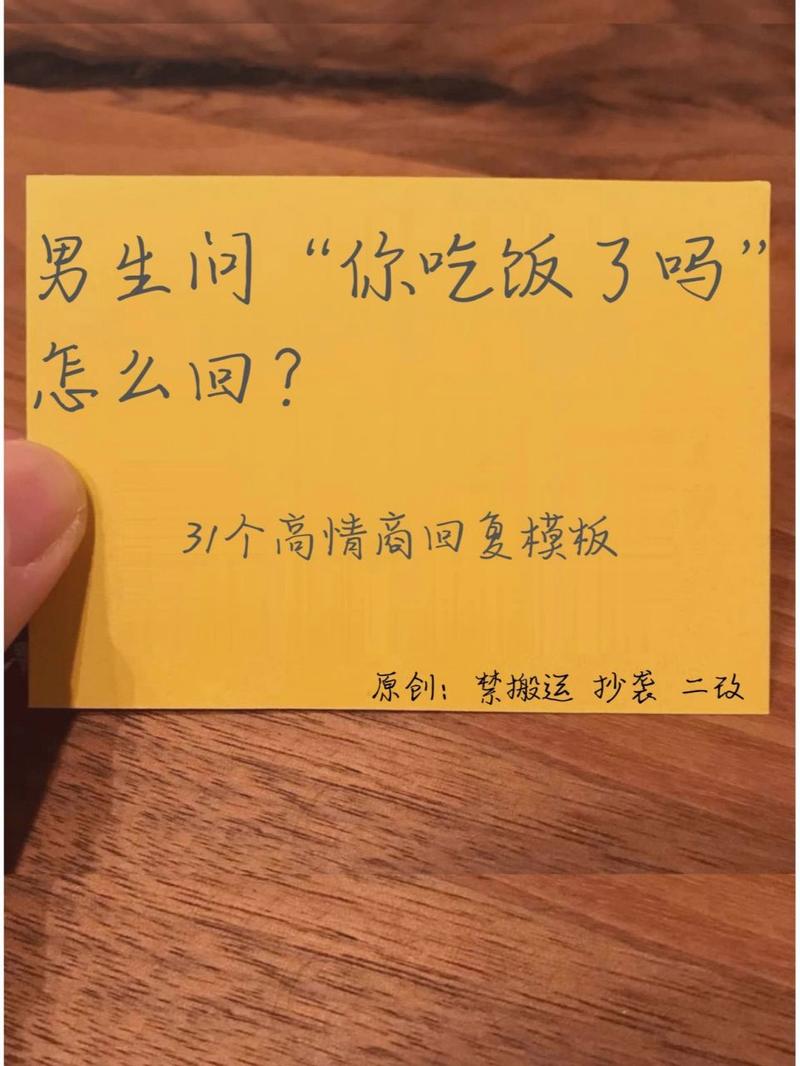 男生问“你吃饭了吗”
怎么回？
31个高情商回复模板
原创：禁搬运 抄袭 二改